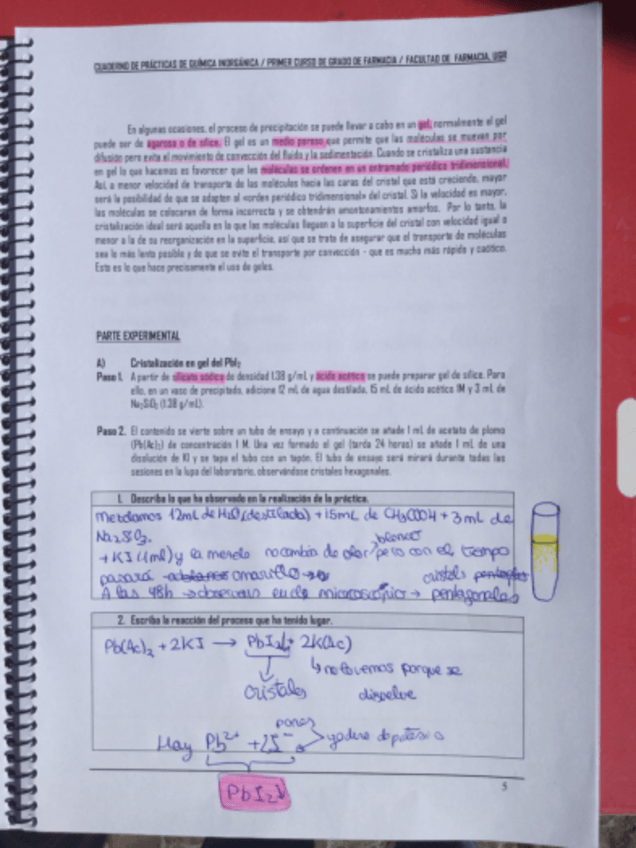 CUADERNO DE PRÁCTICAS DE QUÍMICA INORGÁNICA / PRIMER CURSO DE GRADO DE FARMACIA / FACULTAD DE FARMACIA, UGR
En algunas ocasiones, el proceso de precipitación se puede llevar a cabo en un gel, normalmente el gel
puede ser de agarosa o de sílice. El gel es un medio poroso que permite que las moléculas se muevan por
difusión pero evita el movimiento de convección del fluido y la sedimentación. Cuando se cristaliza una sustancia
en gel lo que hacemos es favorecer que las moléculas se ordenen en un entramado periódico tridimensional.
Así, a menor velocidad de transporte de las moléculas hacia las caras del cristal que está creciendo, mayor
será la posibilidad de que se adapten al «orden periódico tridimensional» del cristal. Si la velocidad es mayor,
las moléculas se colocaran de forma incorrecta y se obtendrán amontonamientos amorfos. Por lo tanto, la
cristalización ideal será aquella en la que las moléculas lleguen a la superficie del cristal con velocidad igual o
menor a la de su reorganización en la superficie, así que se trata de asegurar que el transporte de moléculas
sea lo más lento posible y de que se evite el transporte por convección - que es mucho más rápido y caótico.
Esto es lo que hace precisamente el uso de geles.
PARTE EXPERIMENTAL
A) Cristalización en gel del PbI₂
Paso 1. A partir de silicato sódico de densidad 1.38 g/mL y ácido acético se puede preparar gel de sílice. Para
ello, en un vaso de precipitado, adicione 12 mL de agua destilada, 15 mL de ácido acético 1M y 3 mL de
Na₂SiO₃ (1.38 g/mL).
Paso 2. El contenido se vierte sobre un tubo de ensayo y a continuación se añade 1 mL de acetato de plomo
(Pb(Ac)₂) de concentración 1 M. Una vez formado el gel (tarda 24 horas) se añade 1 mL de una
disolución de KI y se tapa el tubo con un tapón. El tubo de ensayo será mirará durante todas las
sesiones en la lupa del laboratorio, observándose cristales hexagonales.
1. Describa lo que ha observado en la realización de la práctica.
Metolamos 12mL de H₂O (destilada) + 15mL de CH₃COOH + 3 mL de
Na₂SiO₃.
blanco
+ KI (1ml) y la mezcla no cambia de color, pero con el tiempo
pasará amarillo
cristales
A las 48h → observar en el microscópio → pentagonales
2. Escriba la reacción del proceso que ha tenido lugar.
Pb(Ac)₂ + 2KI → PbI₂↓ + 2K(Ac)
↳ no lo vemos porque se
cristales disuelve
Hay Pb²⁺ + 2I⁻ yoduro de potasio
PbI₂↓
5